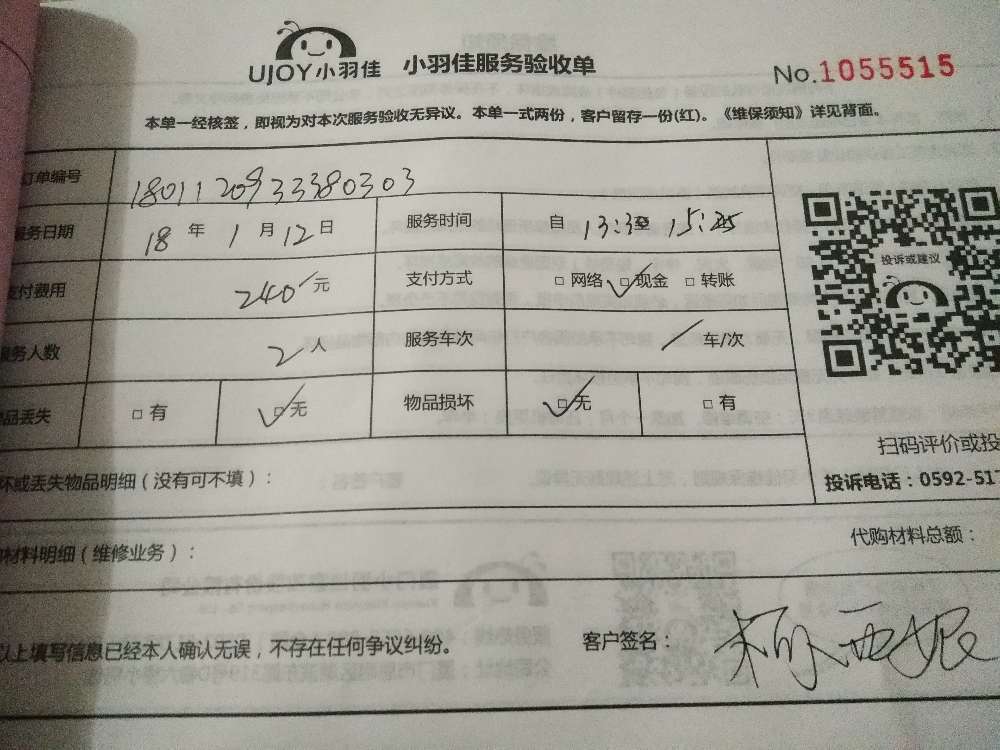 UJOY小羽佳 小羽佳服务验收单 No.1055515
本单一经核签，即视为对本次服务验收无异议。本单一式两份，客户留存一份(红)。《维保须知》详见背面。
订单编号 18011209333380303
服务日期 18 年 1 月 12 日 服务时间 自 13:3 至 15:25
支付费用 240 元 支付方式 □ 网络 □现金 □ 转账
投诉或建议
服务人数 2 人 服务车次 / 车/次
品丢失 □ 有 □无 物品损坏 □无 □有
扫码评价或投
坏或丢失物品明细（没有可不填）：
投诉电话：0592-517
材料明细（维修业务）： 代购材料总额：
以上填写信息已经本人确认无误，不存在任何争议纠纷。 客户签名：